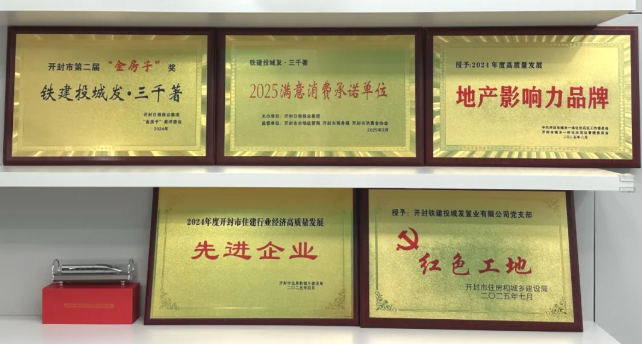 开封市第二届“金房子”奖
铁建投城发·三千著
开封日报报业集团
“金房子”奖评委会
2024年
铁建投城发·三千著
2025满意消费承诺单位
主办单位：开封日报报业集团
2025年3月
授予:2024年度高质量发展
地产影响力品牌
二〇二五年二月
2024年度开封市住建行业经济高质量发展
先进企业
开封市住房和城乡建设局
二〇二五年四月
授予：开封铁建投城发置业有限公司党支部
红色工地
开封市住房和城乡建设局
二〇二五年七月